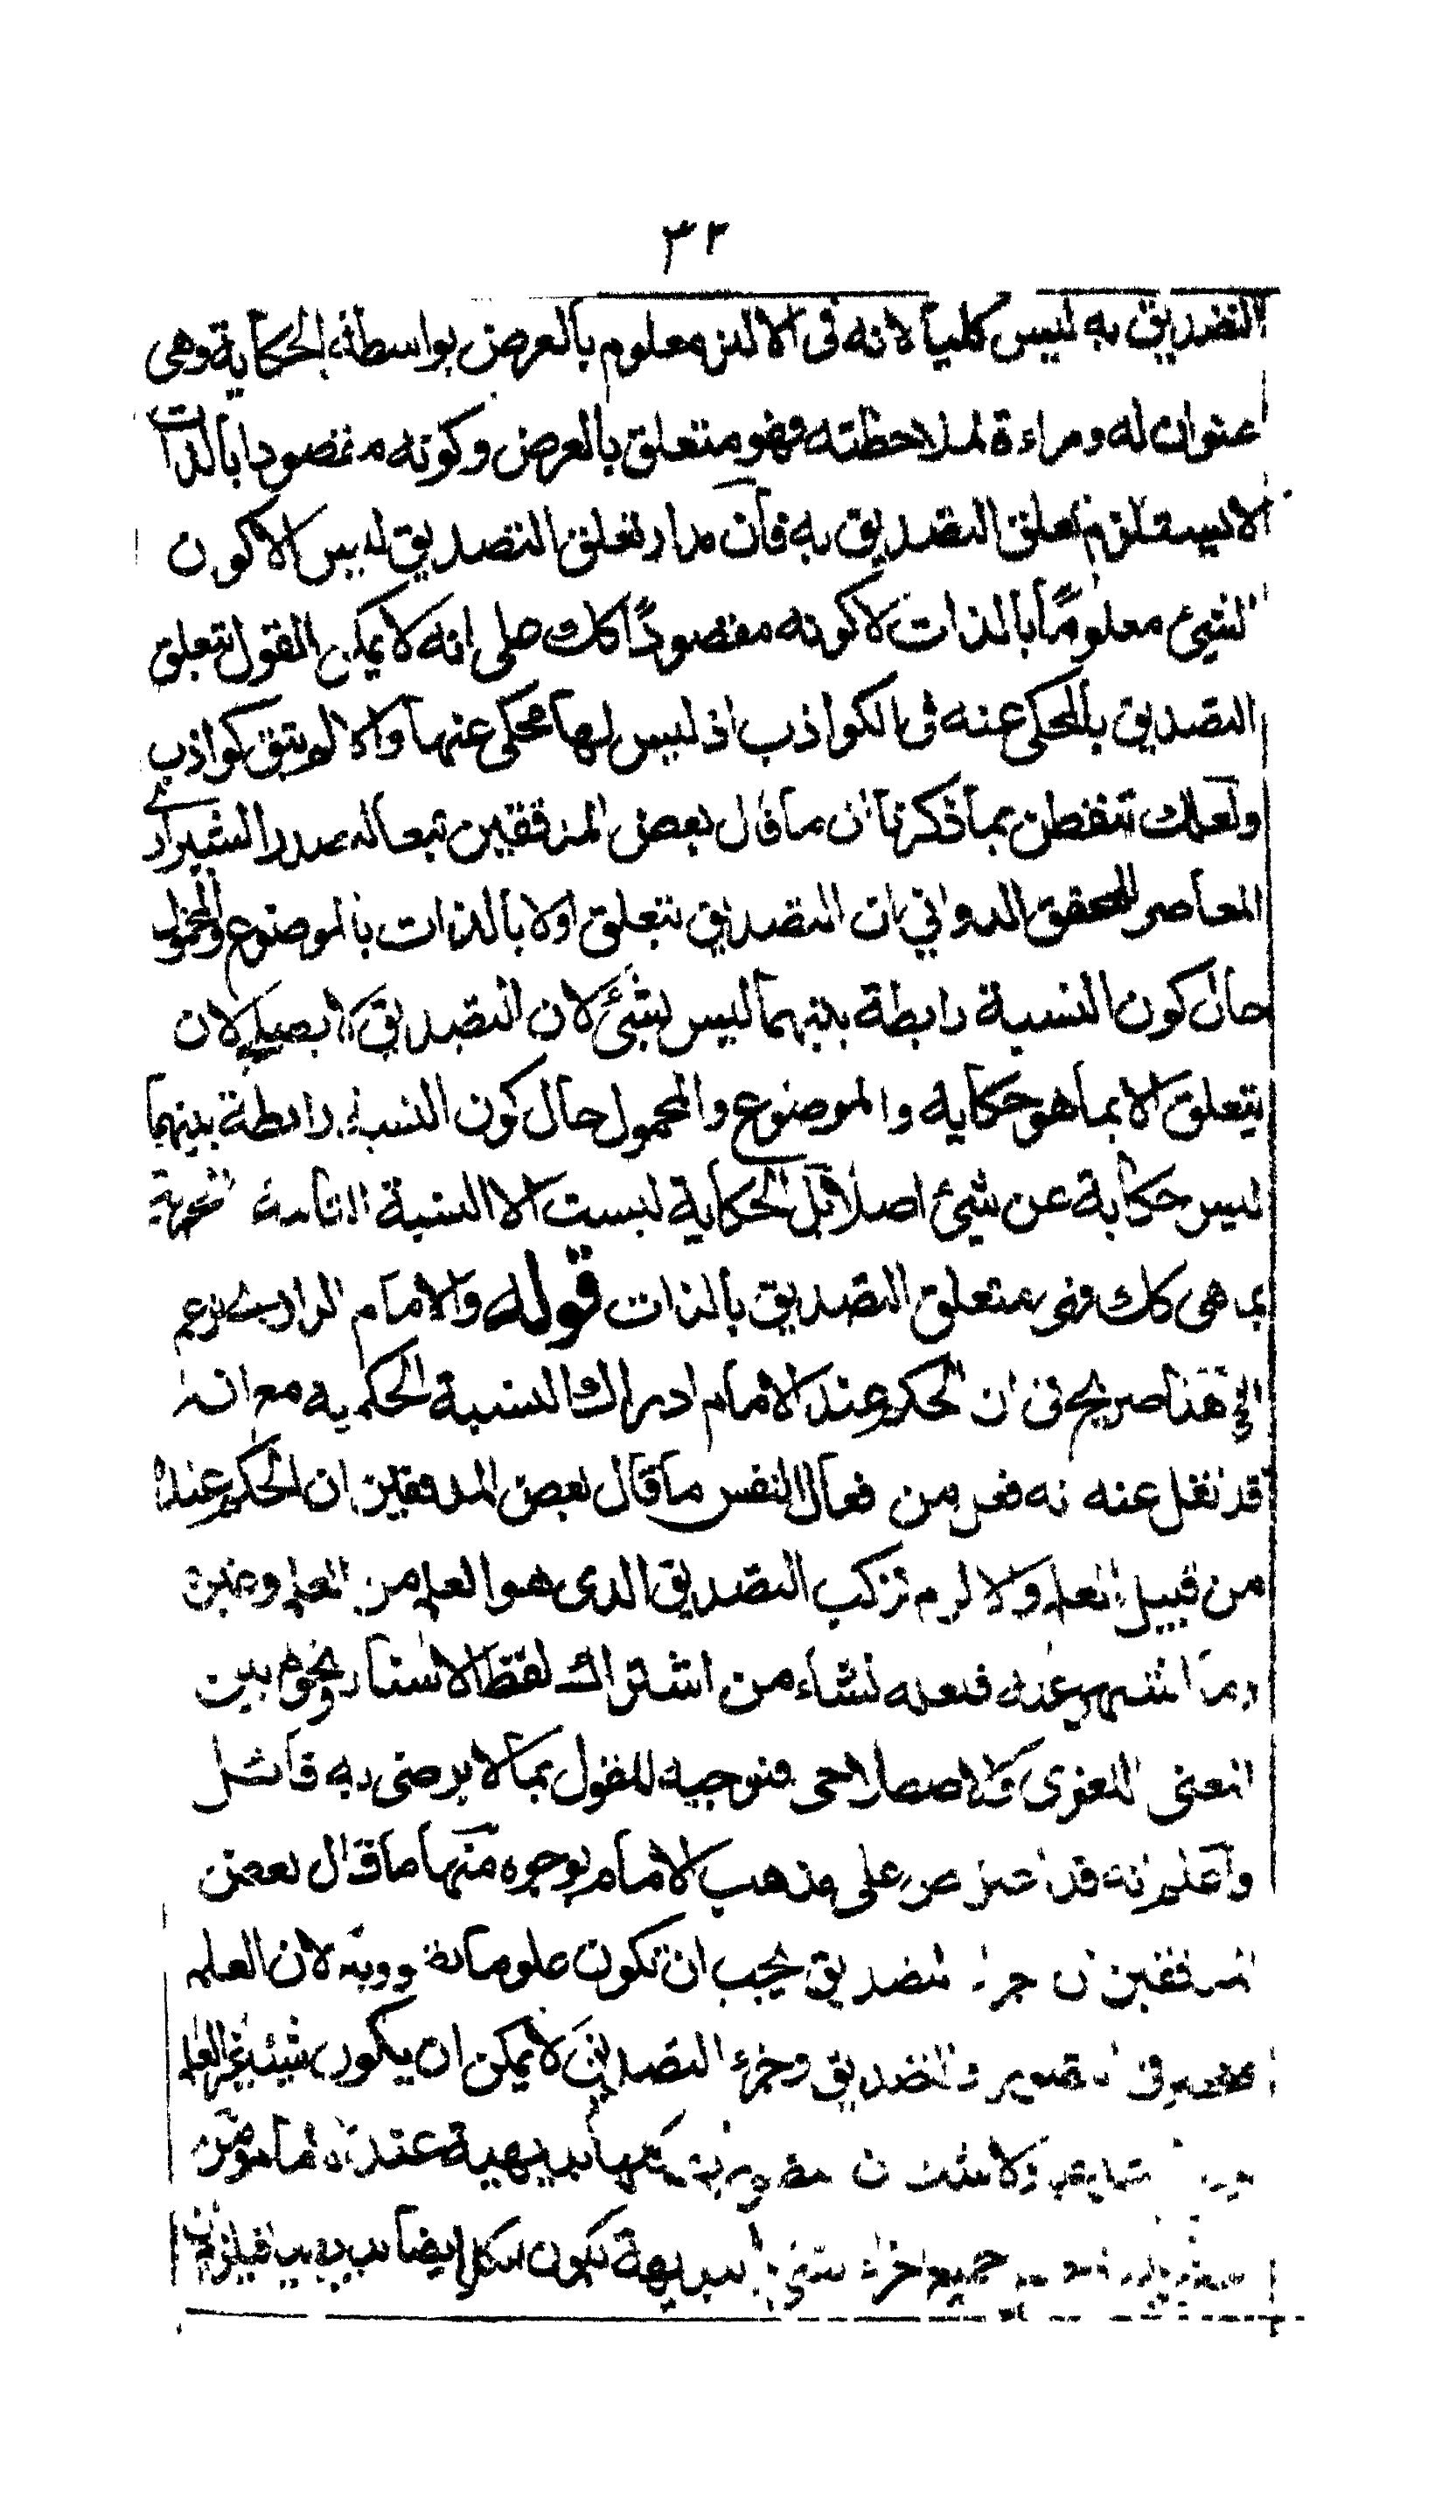 ٣٢
التصديق به ليس كليا لانه فى الاكثر معلوم بالعرض بواسطة الحكاية وهى
عنوان له ومراءة لملاحظته فهو متعلق بالعرض وكونه مقصودا بالذات
لا يستلزم تعلق التصديق به فان مدار تعلق التصديق ليس الا كون
الشيئ معلومًا بالذات لا كونه مقصودًا كك على انه لا يمكن القول بتعلق
التصديق بالمحكى عنه فى الكواذب اذ ليس لها محكى عنها والا لم يبق كواذب
ولعلك تتفطن بما ذكرنا ان ما قال بعض المدققين تبعا لصدر الشيرازى
المعاصر للمحقق الدوانى ان التصديق يتعلق اولا بالذات بالموضوع والمحمول
حال كون النسبة رابطة بينهما ليس بشئ لان التصديق لا يصلح لان
يتعلق الا بما هو حكاية والموضوع والمحمول حال كون النسبة رابطة بينهما
ليس حكاية عن شيئ اصلا بل الحكاية ليست الا النسبة التامة الخبرية
بما هى كك فهى متعلق التصديق بالذات قوله والامام الرازى زعم
الخ هذا صريح فى ان الحكم عند الامام ادراك النسبة الحكمية مع انه
قد نقل عنه انه فعل من افعال النفس ما قال بعض المدققين ان الحكم عنده
من قبيل العلم والا لزم تركب التصديق الذى هو العلم من العلم وغيره
وما اشتهر عنه فلعله نشاء من اشتراك لفظ الاسناد ونحوه بين
المعنى اللغوى والاصطلاحى فتوجيه للقول بما لا يرضى به قائله
واعلم انه قد اعترض على مذهب الامام بوجوه منها ما قال بعض
المدققين ان جزء التصديق يجب ان تكون علوما لان العلم
منحصر فى التصور والتصديق وجزء التصديق لا يمكن ان يكون شيئا غير العلم
ولا شك ان كلها بديهية عنده
جميع اجزاء الشئ بديهية يكون الكل ايضا بديهيا فيلزم ان